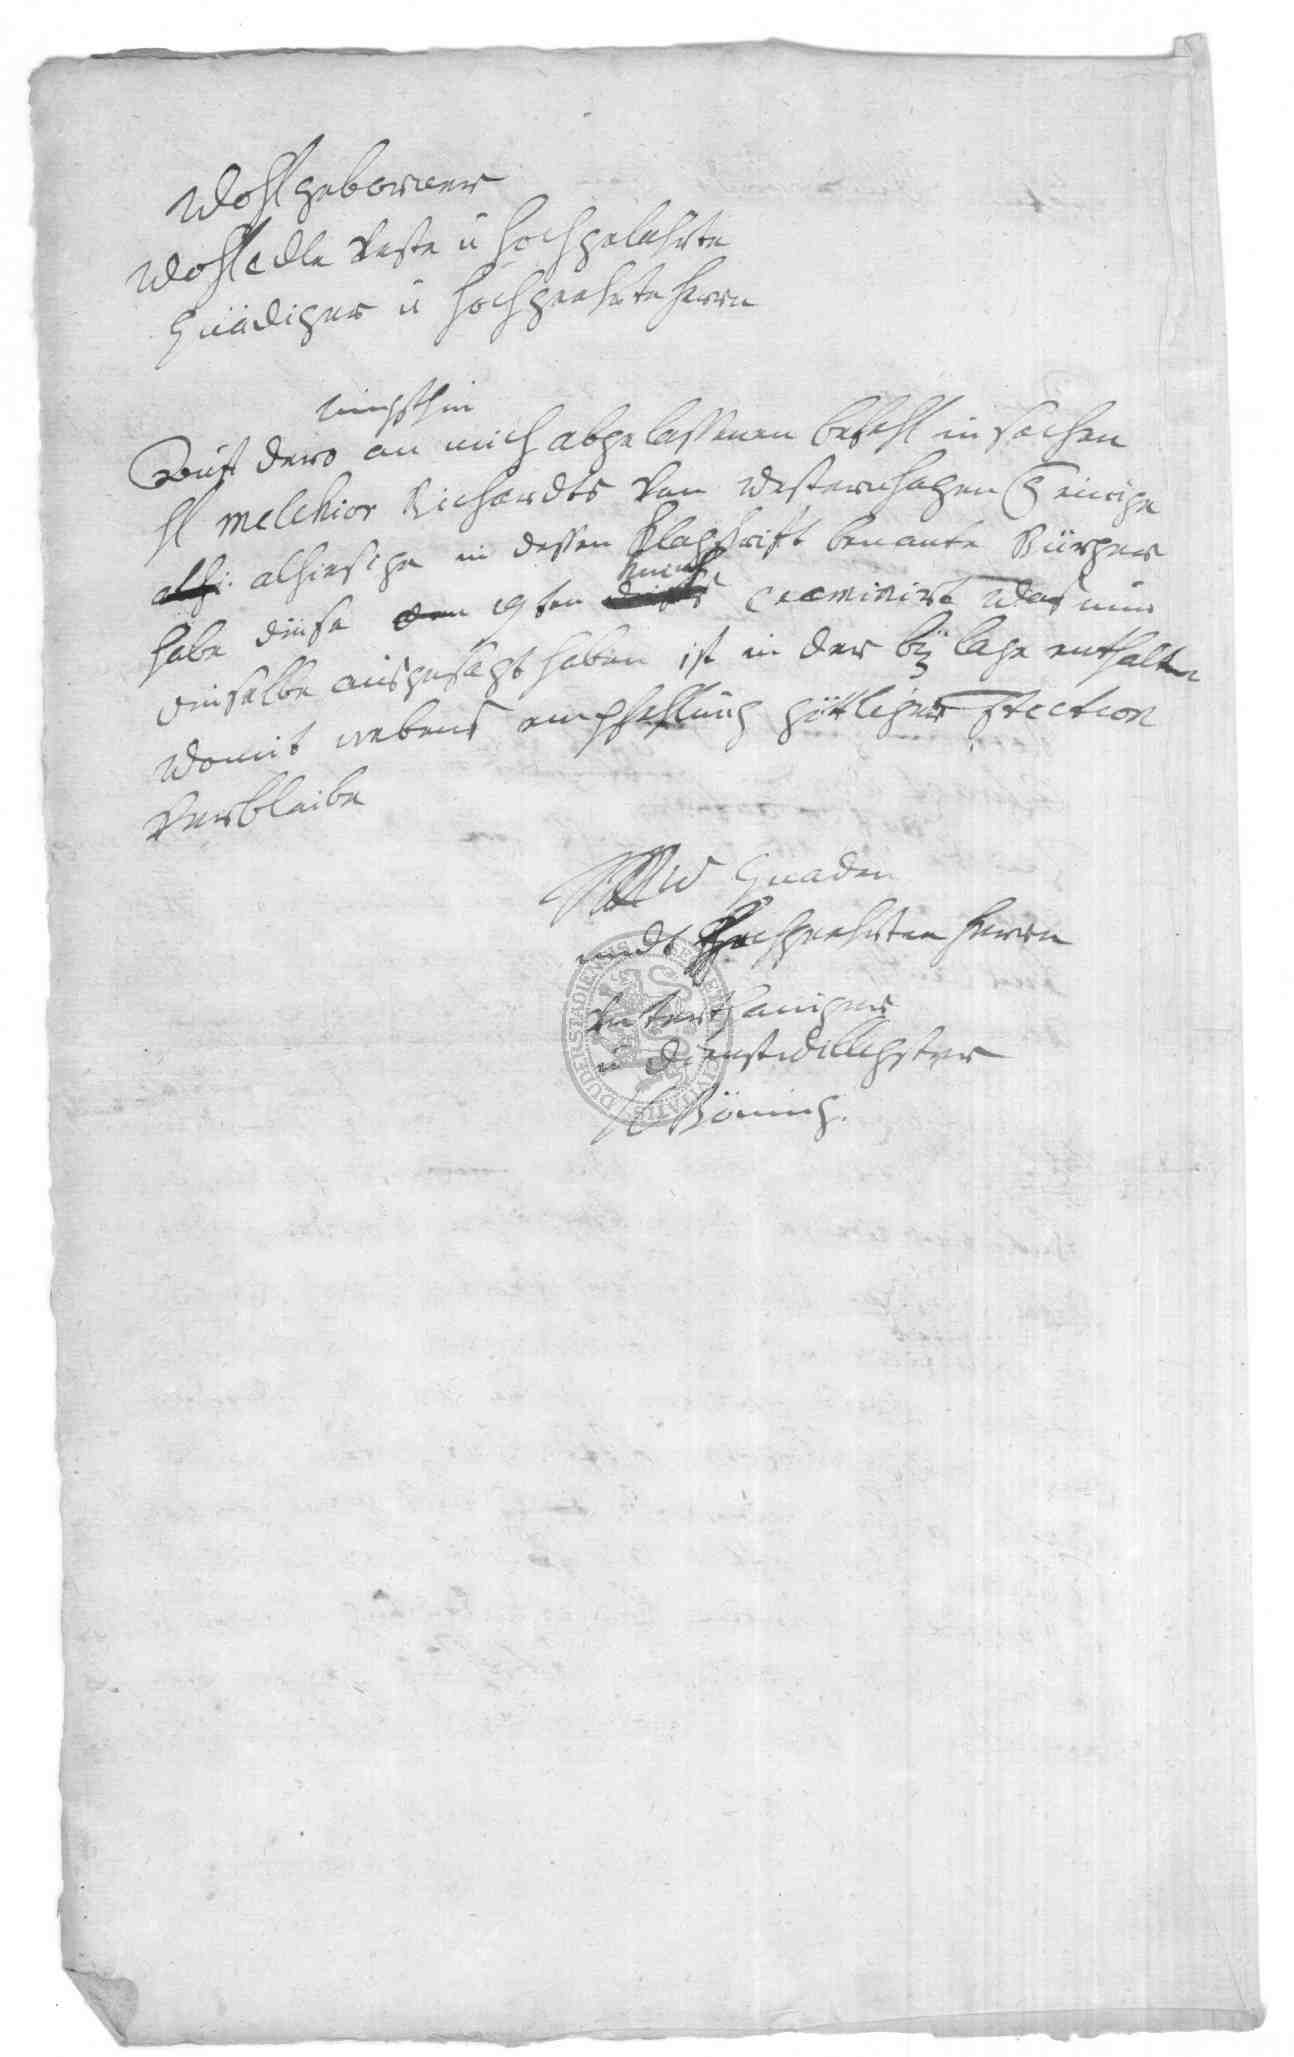 Wohlgeborner
Wohledle Veste ü hochgelahrte
Gnädiger ü hochgeehrte herrn
jüngsthin
Auff dero an mich abgelassenen befehl in sachen
H Melchior Richardts Von Westernhagen einige
alhiesige in dessen Klagschrifft benante Bürger
habe diese den 19ten examinirt Was nun
dieselbe außgesagt haben ist in der bÿlage enthalten
Womit nebens empfehlung göttlicher
Verbleibe
Ew Gnaden
undt hochgeehrten herrn
Unterthäniger
ü dienstwilligster
Böning.
DUDERSTADIENSIS CIVITATIS